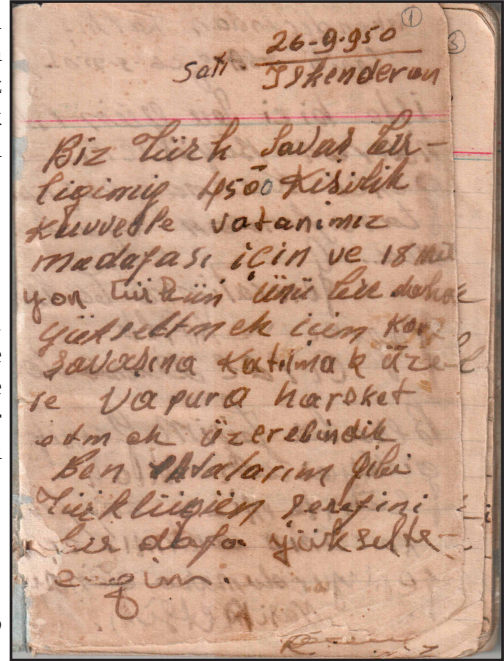 1
26-9-950
Salı. Iskenderun
Biz Türk Savaş bir-
ligimiz 4500 Kişilik
Kuvvetle vatanımız
madafası için ve 18 mil
yon Türkün ünü bir daha
yükseltmek için Kor
Savaşına Katılmak üze-
re Vapura hareket
etmek üzere bindik
Ben Atalarım gibi
Türklügün şerefini
bir dafa yükselte-
cegim.